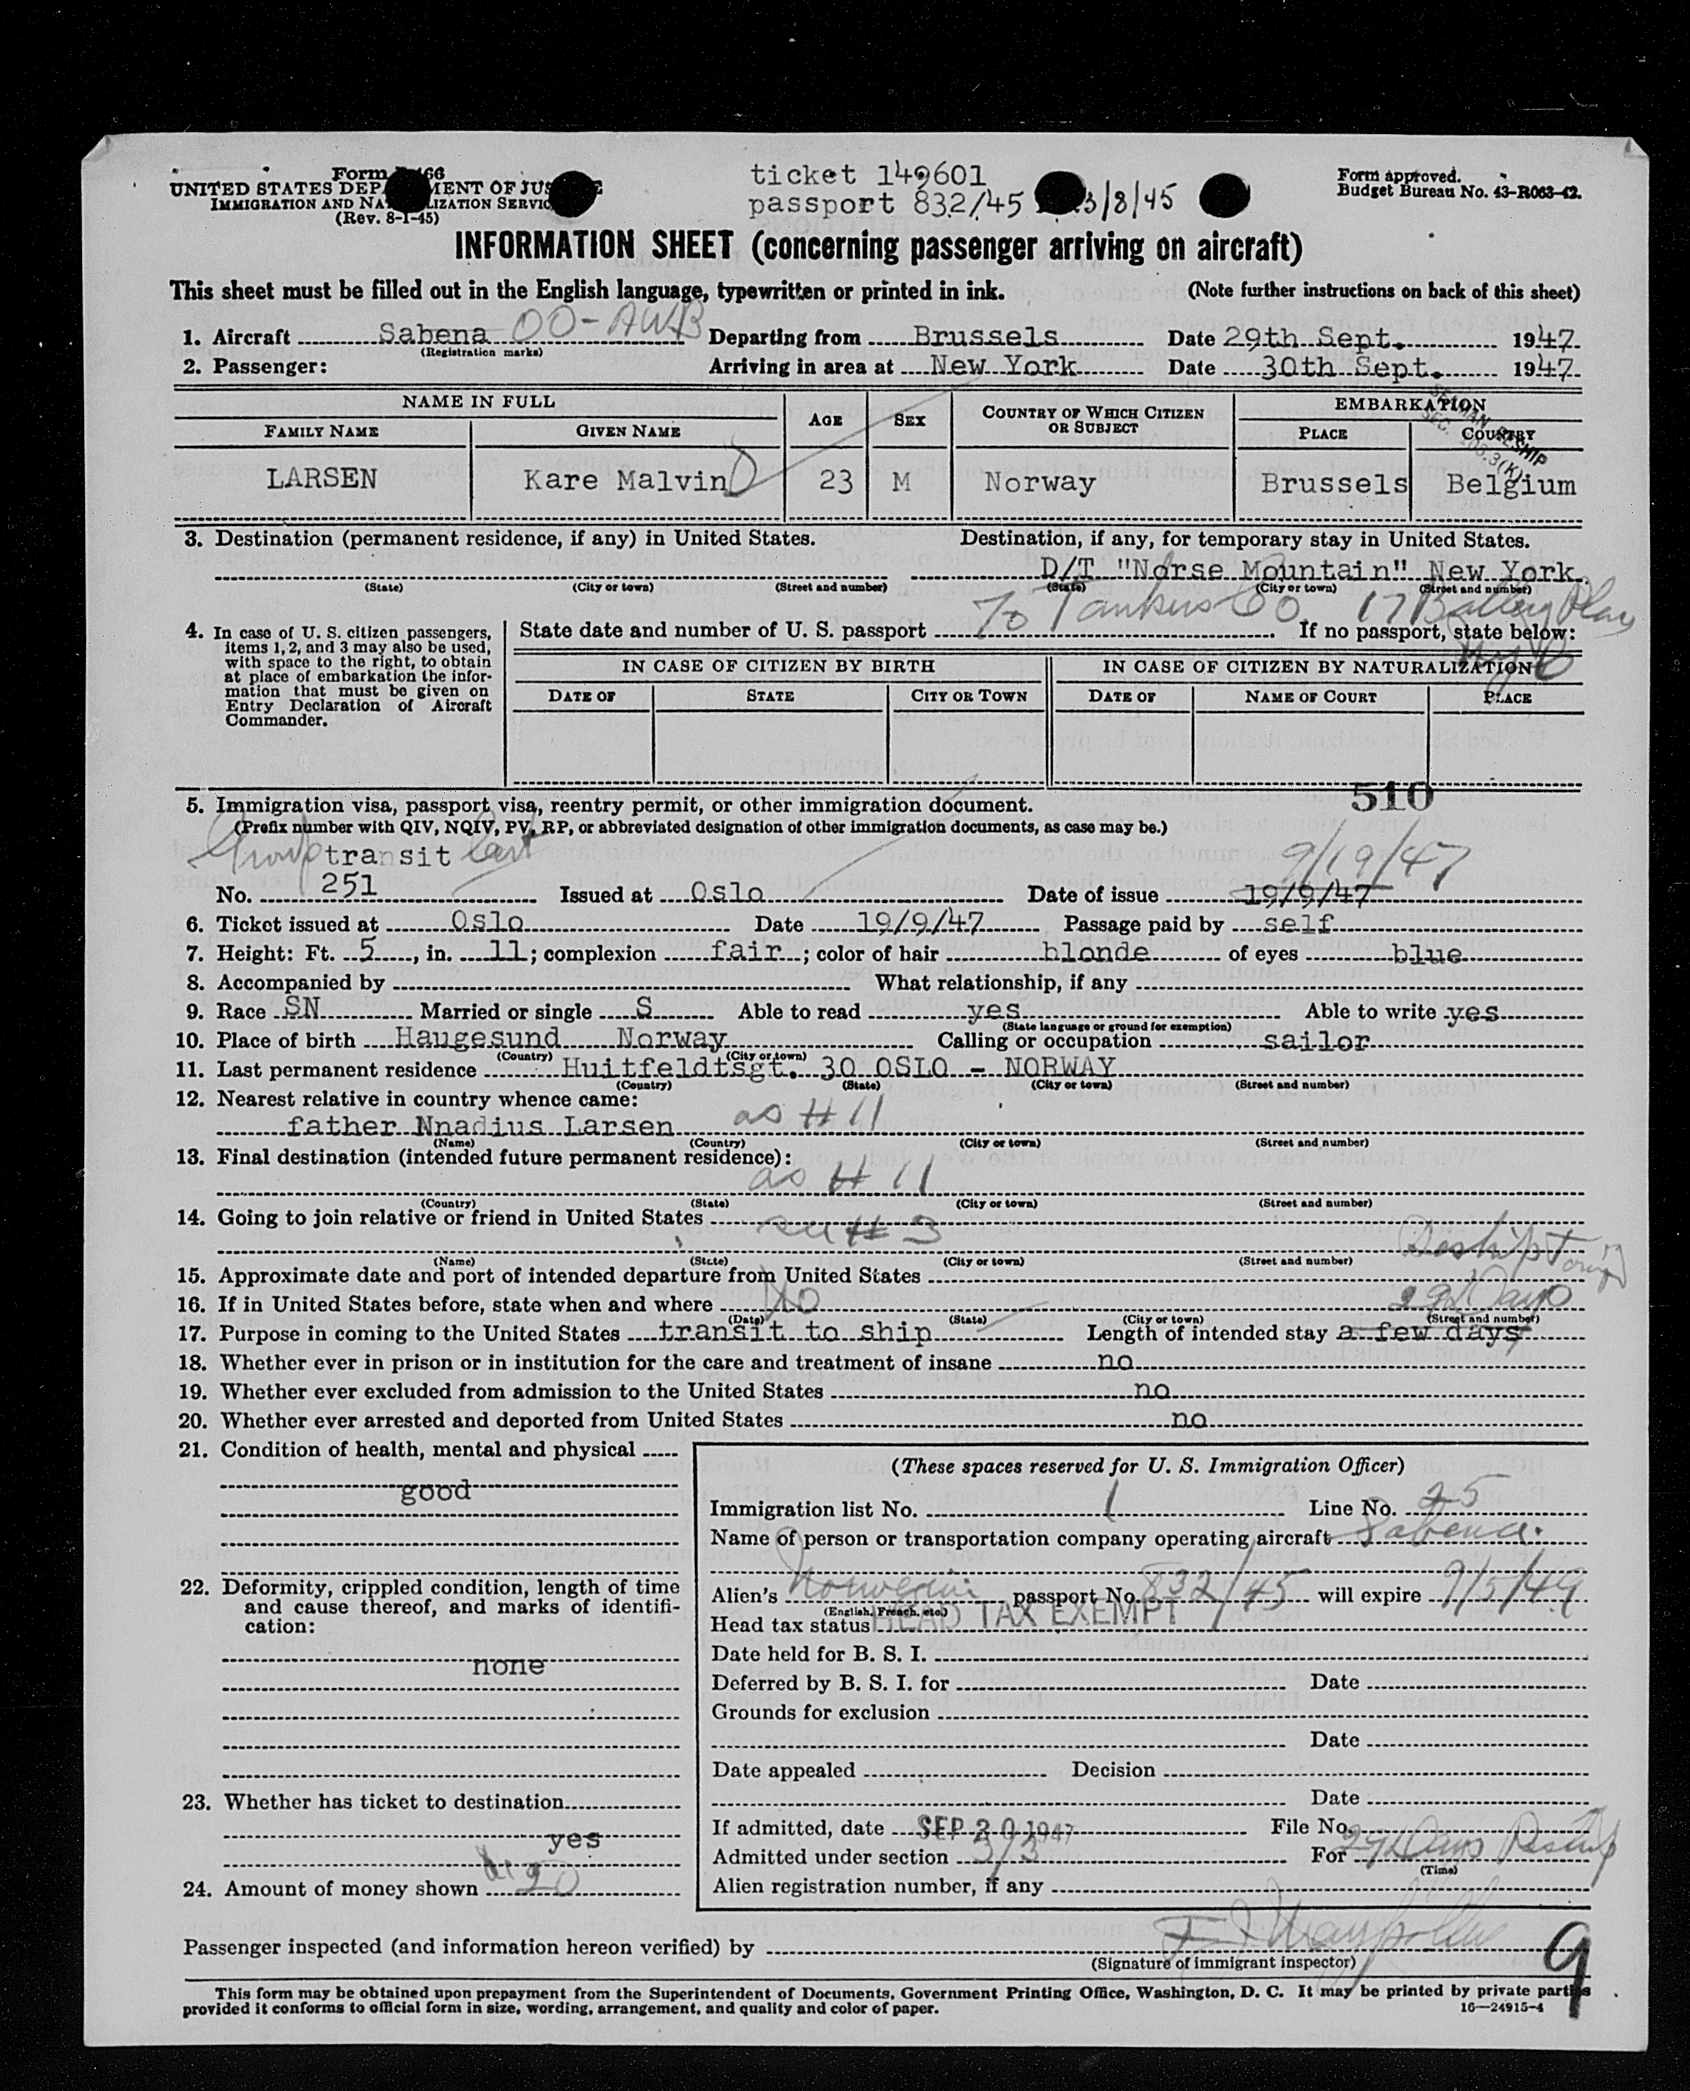 ticket 149601
Form 66 Form approved.
UNITED STATES DEP MENT OF JUS passport 832/45 3/8/45 Budget Bureau No. 43-R063-42.
IMMIGRATION AND NA LIZATION SERVIC
(Rev. 8-1-45)
INFORMATION SHEET (concerning passenger arriving on aircraft)
This sheet must be filled out in the English language, typewritten or printed in ink. (Note further instructions on back of this sheet)
1. Aircraft Sabena OO-AWB Departing from Brussels Date 29th Sept. 1947
(Registration marks)
2. Passenger: Arriving in area at New York Date 30th Sept. 1947
SEAMAN RESHIP
NAME IN FULL AGE SEX COUNTRY OF WHICH CITIZEN OR SUBJECT EMBARKATION
FAMILY NAME GIVEN NAME PLACE COUNTRY
LARSEN Kare Malvin 23 M Norway Brussels Belgium
3. Destination (permanent residence, if any) in United States. Destination, if any, for temporary stay in United States.
D/T "Norse Mountain" New York
(State) (City or town) (Street and number) (State) (City or town) (Street and number)
To Tankers Co 17 Battery Place
NYC
4. In case of U. S. citizen passengers, State date and number of U. S. passport If no passport, state below:
items 1, 2, and 3 may also be used,
with space to the right, to obtain IN CASE OF CITIZEN BY BIRTH IN CASE OF CITIZEN BY NATURALIZATION
at place of embarkation the infor-
mation that must be given on DATE OF STATE CITY OR TOWN DATE OF NAME OF COURT PLACE
Entry Declaration of Aircraft
Commander.
510
5. Immigration visa, passport visa, reentry permit, or other immigration document.
(Prefix number with QIV, NQIV, PV, RP, or abbreviated designation of other immigration documents, as case may be.)
Group transit Cert 9/19/47
No. 251 Issued at Oslo Date of issue 19/9/47
6. Ticket issued at Oslo Date 19/9/47 Passage paid by self
7. Height: Ft. 5, in. 11; complexion fair; color of hair blonde of eyes blue
8. Accompanied by What relationship, if any
9. Race SN Married or single S Able to read yes Able to write yes
(State language or ground for exemption)
10. Place of birth Haugesund Norway Calling or occupation sailor
(Country) (City or town)
11. Last permanent residence Huitfeldtsgt. 30 OSLO - NORWAY
(Country) (State) (City or town) (Street and number)
12. Nearest relative in country whence came:
father Nnadius Larsen as # 11
(Name) (Country) (City or town) (Street and number)
13. Final destination (intended future permanent residence):
as # 11
(Country) (State) (City or town) (Street and number)
14. Going to join relative or friend in United States
# 3
(Name) (State) (City or town) (Street and number)
15. Approximate date and port of intended departure from United States
16. If in United States before, state when and where No 29 Days
(Date) (State) (City or town) (Street and number)
17. Purpose in coming to the United States transit to ship Length of intended stay a few days
18. Whether ever in prison or in institution for the care and treatment of insane no
19. Whether ever excluded from admission to the United States no
20. Whether ever arrested and deported from United States no
21. Condition of health, mental and physical
good
22. Deformity, crippled condition, length of time
and cause thereof, and marks of identifi-
cation:
none
23. Whether has ticket to destination
yes
24. Amount of money shown 20
(These spaces reserved for U. S. Immigration Officer)
Immigration list No. 1 Line No. 25
Name of person or transportation company operating aircraft Sabena
Alien's Norwegian passport No. 832/45 will expire 9/5/49
(English, French, etc.)
Head tax status HEAD TAX EXEMPT
Date held for B. S. I.
Deferred by B. S. I. for Date
Grounds for exclusion
Date
Date appealed Decision
Date
If admitted, date SEP 30 1947 File No.
Admitted under section 3/3 For 29 Days Reship
(Time)
Alien registration number, if any
Passenger inspected (and information hereon verified) by
(Signature of immigrant inspector)
9
This form may be obtained upon prepayment from the Superintendent of Documents, Government Printing Office, Washington, D. C. It may be printed by private parties
provided it conforms to official form in size, wording, arrangement, and quality and color of paper. 16—24915-4